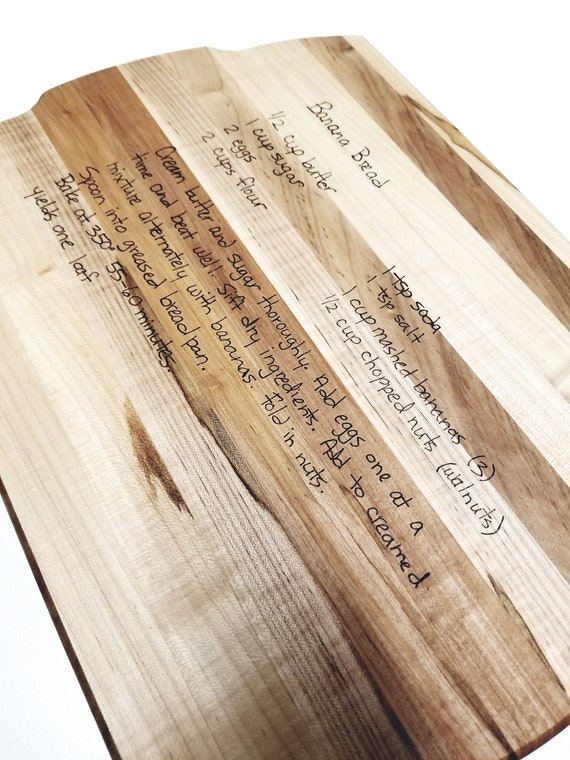 Banana Bread
1/2 cup butter
1 cup sugar
2 eggs
2 cups flour
1 tsp soda
1 tsp salt
1 cup mashed bananas (3)
1/2 cup chopped nuts (walnuts)
Cream butter and sugar thoroughly. Add eggs one at a
time and beat well. Sift dry ingredients. Add to creamed
mixture alternately with bananas. Fold in nuts.
Spoon into greased bread pan.
Bake at 350° 55-60 minutes.
yields one loaf